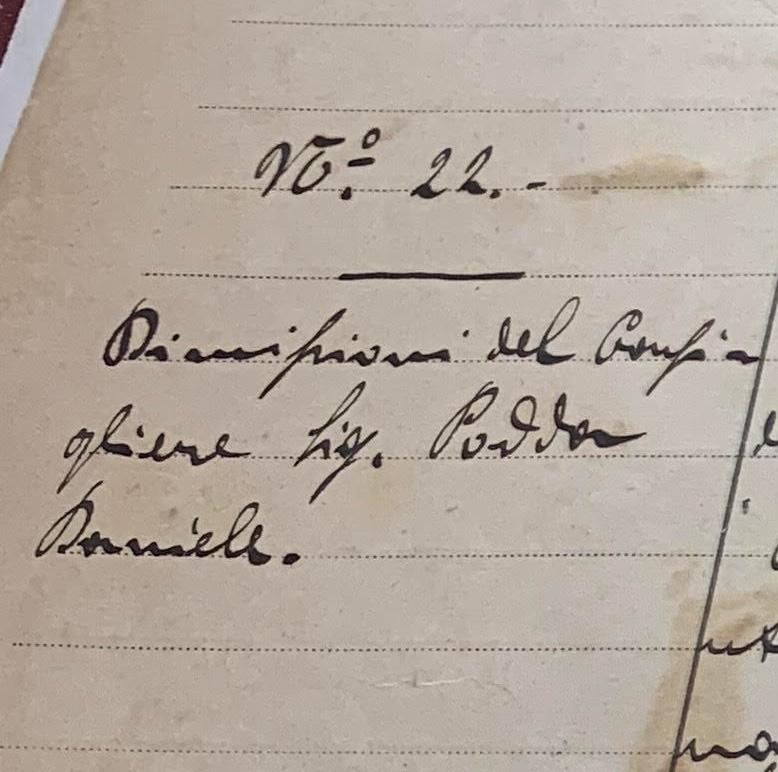 No. 22.-
Dimissioni del Consi-
gliere Sig. Podda
Daniele.